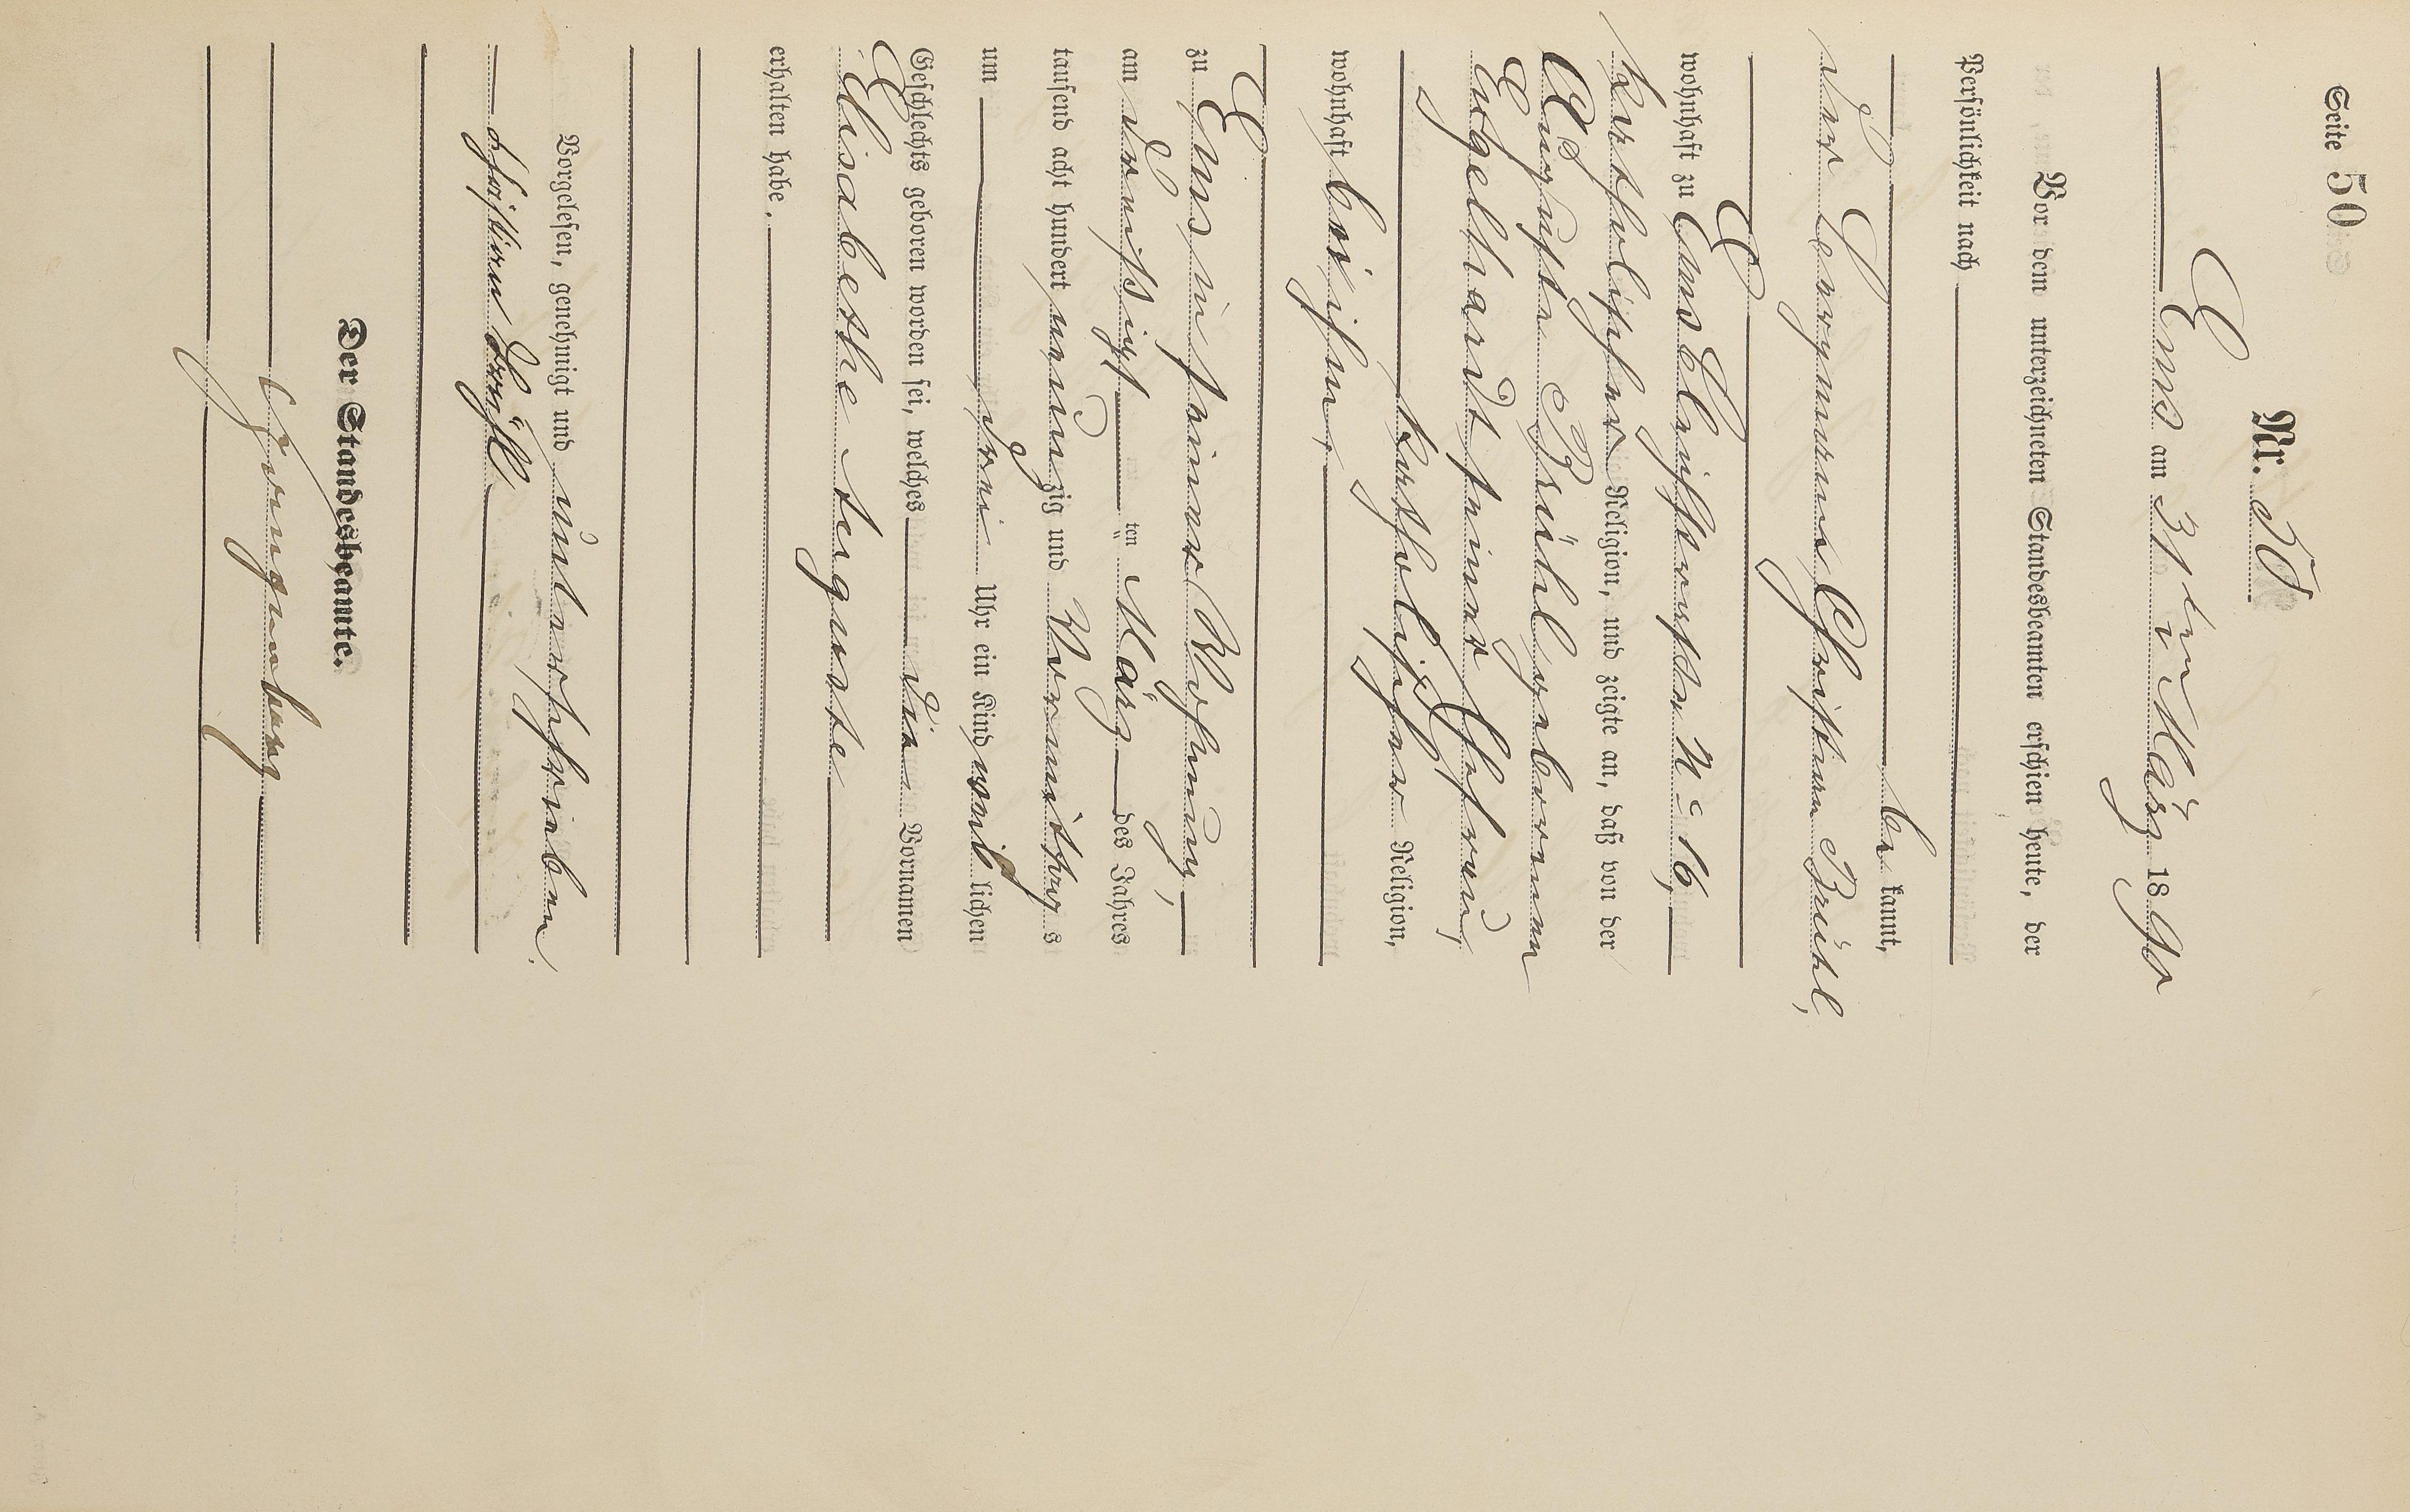 Seite 50
Nr. 50
Ems am 31ten März 1890
Vor dem unterzeichneten Standesbeamten erschien heute, der
Persönlichkeit nach
be kannt,
der Bergmann Christian Brühl,
wohnhaft zu Ems Bleichstraße No 16,
katholischer Religion, und zeigte an, daß von der
Auguste Brühl geborenen
Engelhardt seiner Ehefrau,
katholischer Religion,
wohnhaft bei ihm,
zu Ems in seiner Wohnung,
am dreißigsten März des Jahres
tausend acht hundert neunzig und Vormittags
um drei Uhr ein Kind weiblichen
Geschlechts geboren worden sei, welches die Vornamen
Elisabethe Auguste
erhalten habe.
Vorgelesen, genehmigt und unterschrieben.
Christian Brühl
Der Standesbeamte.